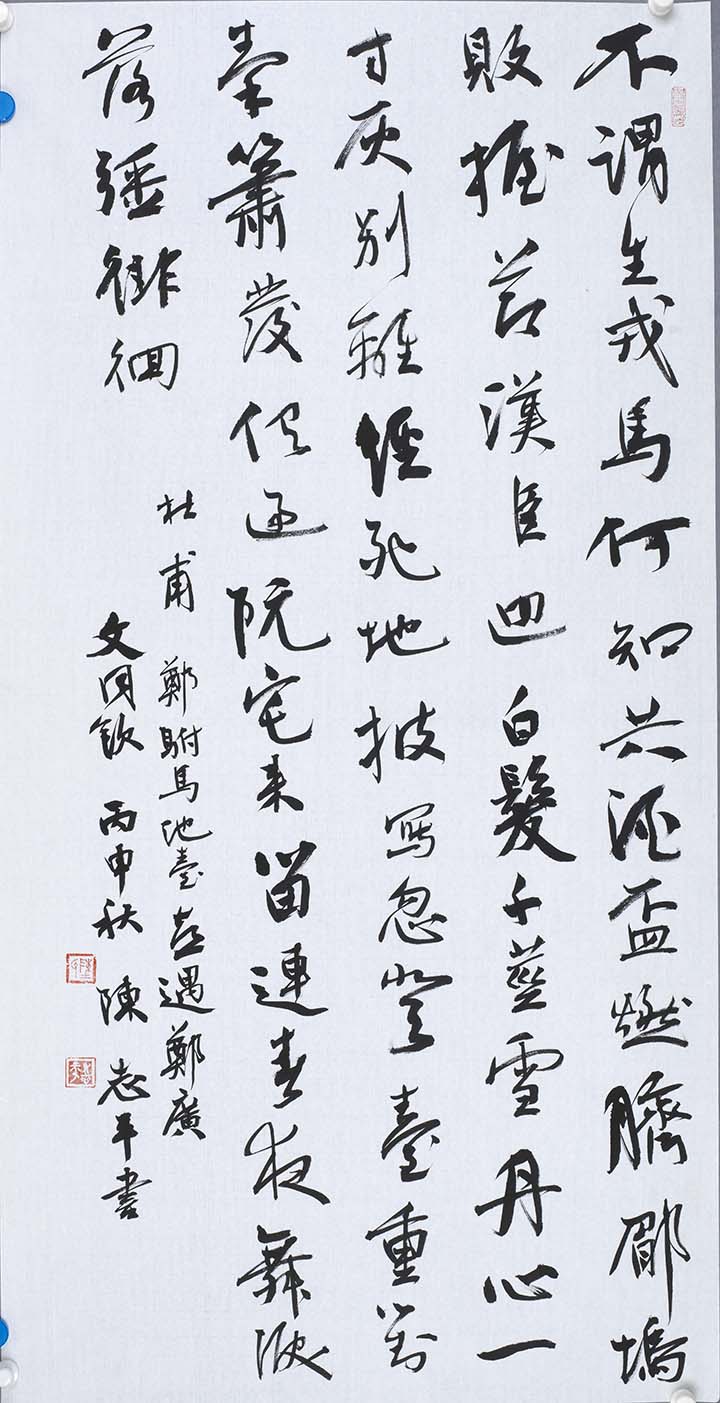 不謂生戎馬何知共酒盃燃臍郿塢
敗握節漢臣迴白髮千莖雪丹心一
寸灰別離經死地披寫忽登臺重對
秦簫發俱過阮宅來留連春夜舞淚
落彊徘徊
杜甫 鄭駙馬池臺喜遇鄭廣
文同飲 丙申秋 陳志平書